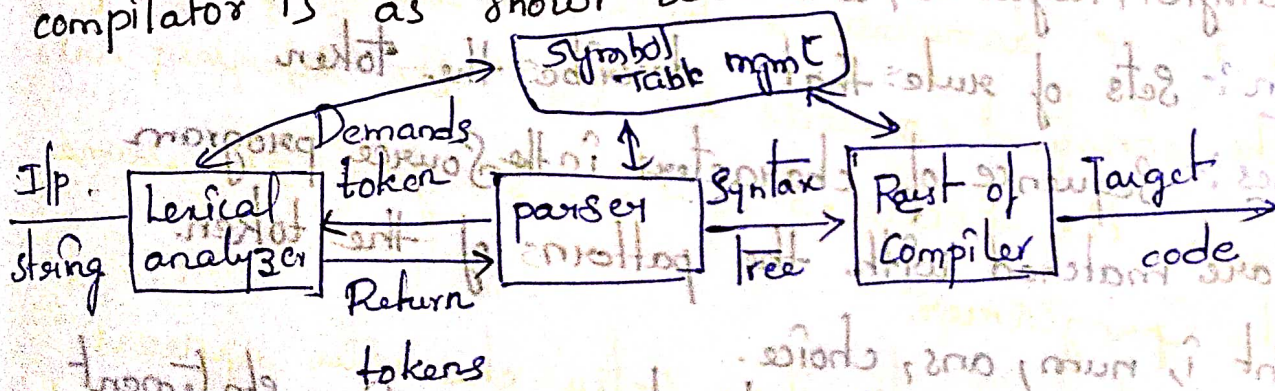 compilator is as shown
Symbol
Table mgmt
Demands
token
I/p.
string
Lexical
analyzer
Return
tokens
parser
Syntax
Tree
Rest of
Compiler
Target
code